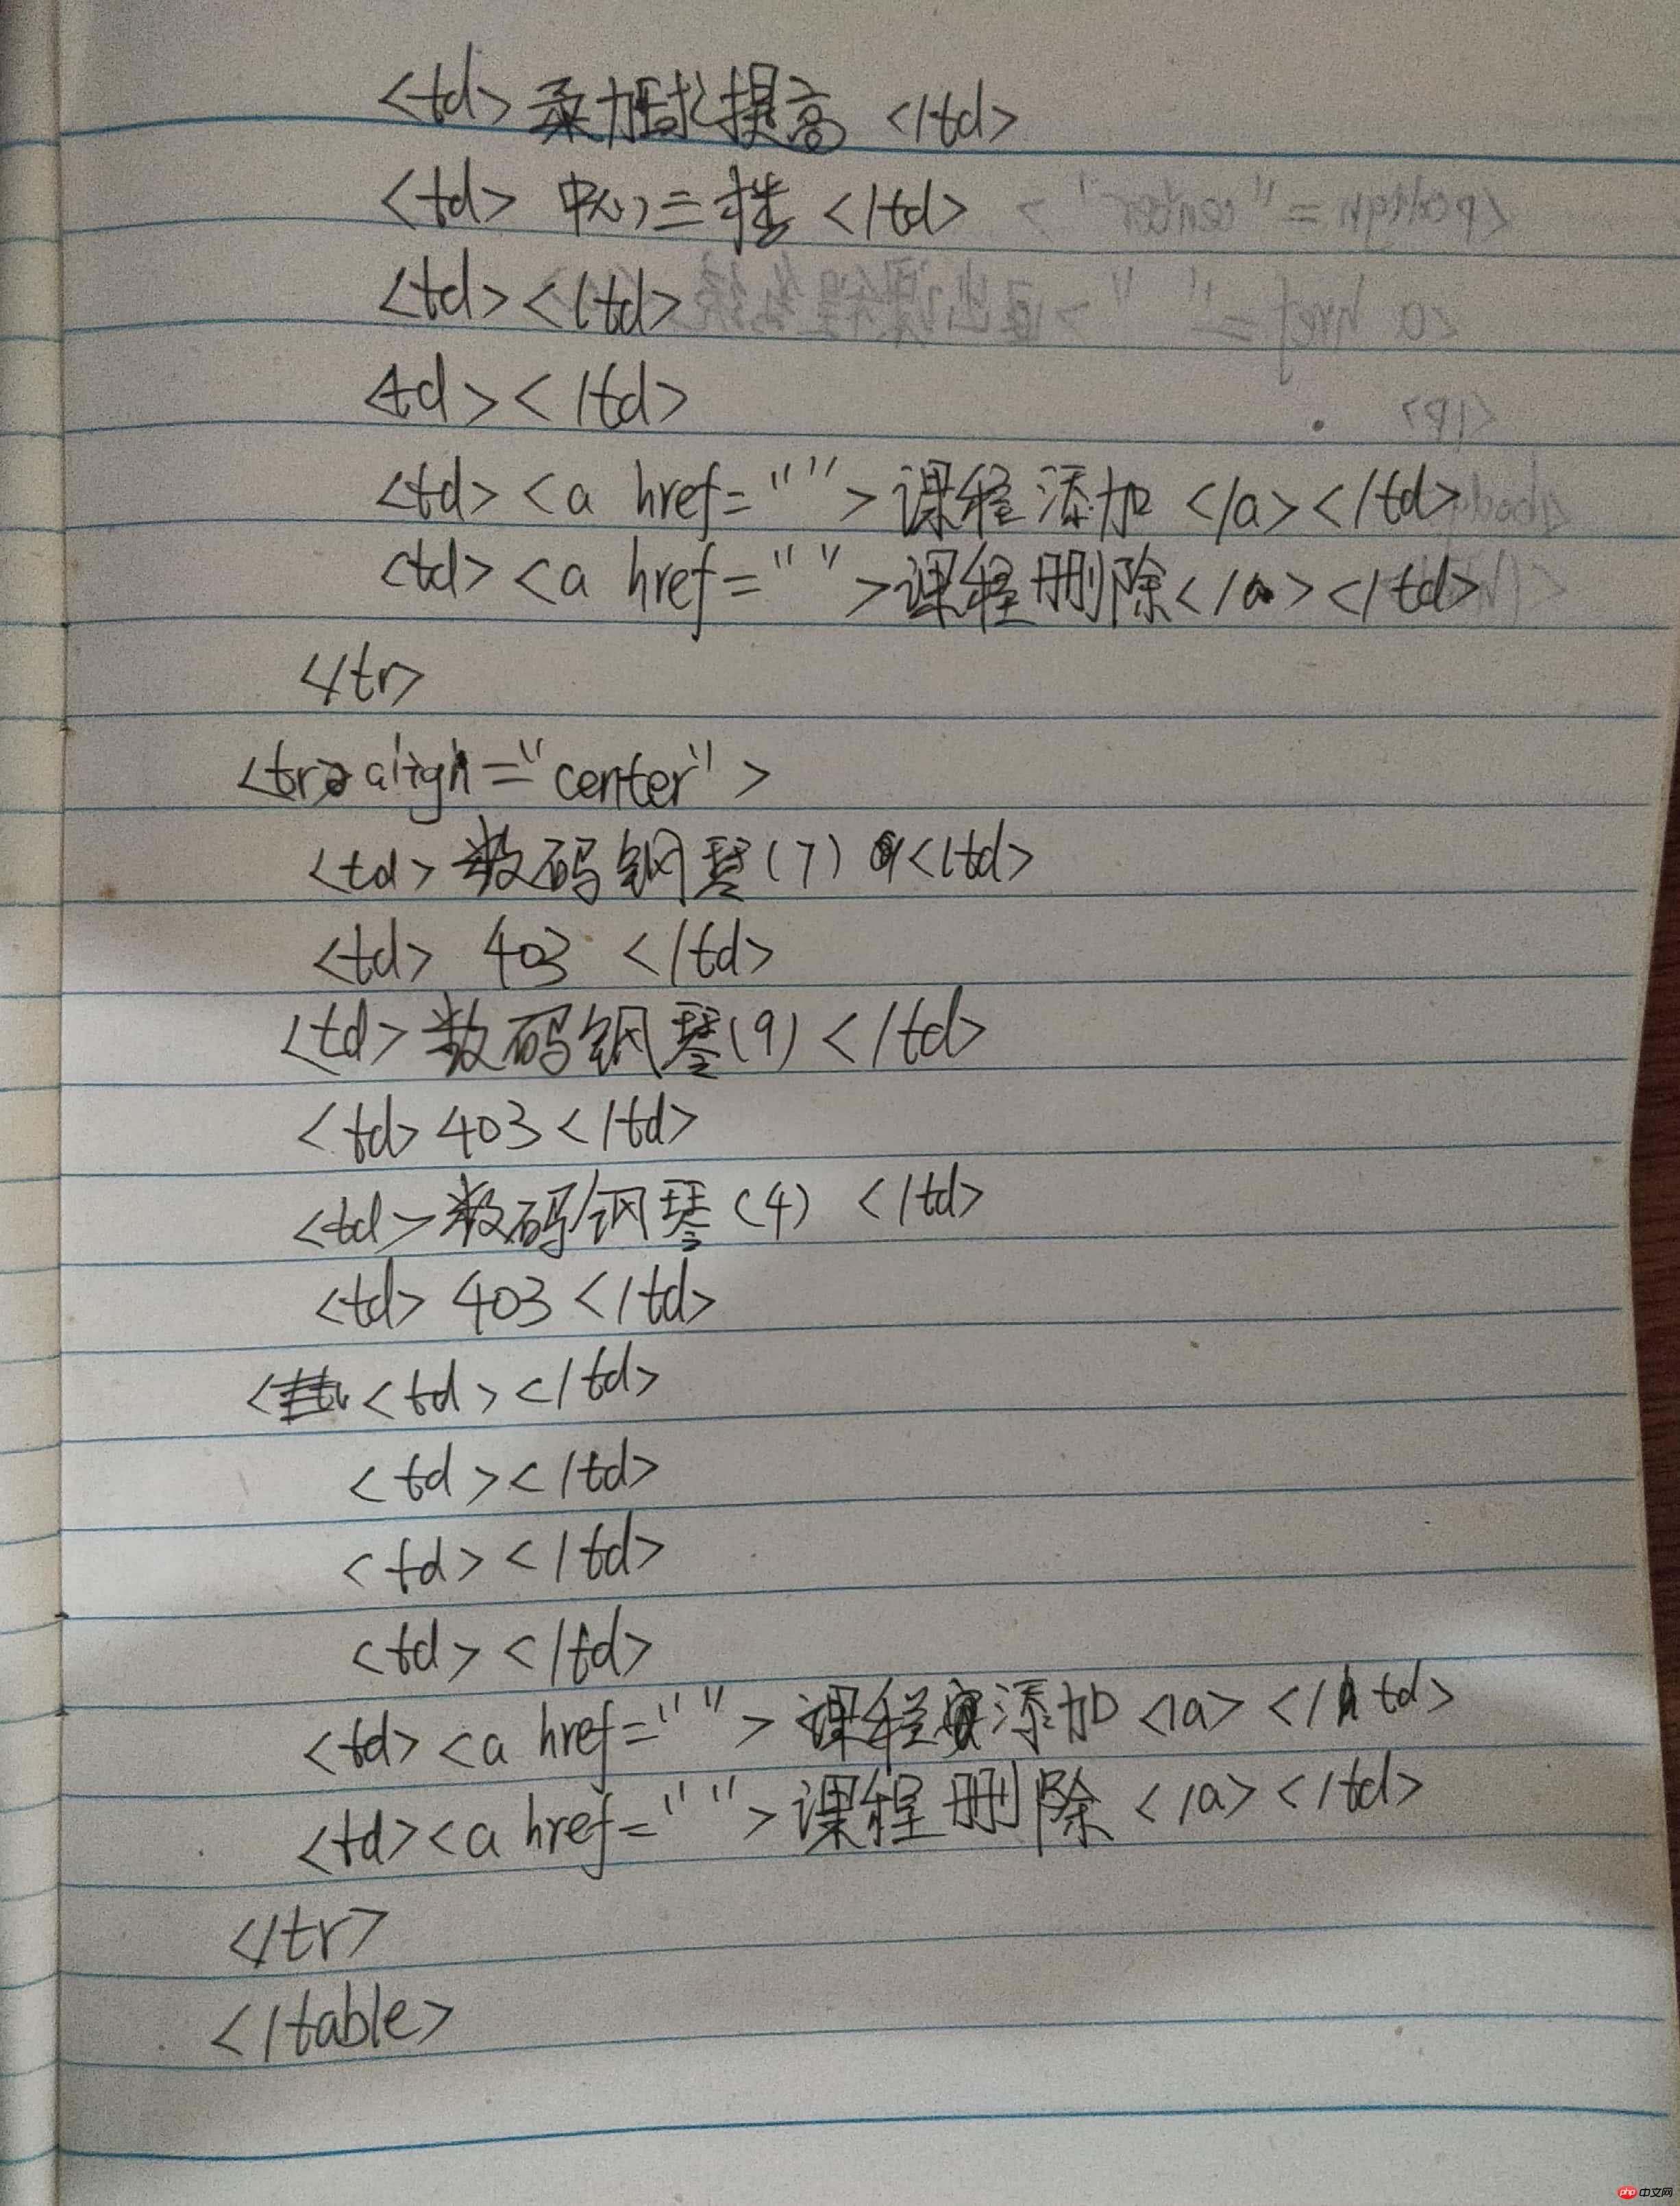 <td>柔力球提高</td>
<td>中心三楼</td>
<td></td>
<td></td>
<td><a href="">课程添加</a></td>
<td><a href="">课程删除</a></td>
</tr>
<tr align="center">
<td>数码钢琴(7)</td>
<td>403</td>
<td>数码钢琴(9)</td>
<td>403</td>
<td>数码钢琴(4)</td>
<td>403</td>
<td></td>
<td></td>
<td></td>
<td></td>
<td><a href="">课程添加</a></td>
<td><a href="">课程删除</a></td>
</tr>
</table>
<palign="center">
<a href="">退出课程系统
</p>
php中文网